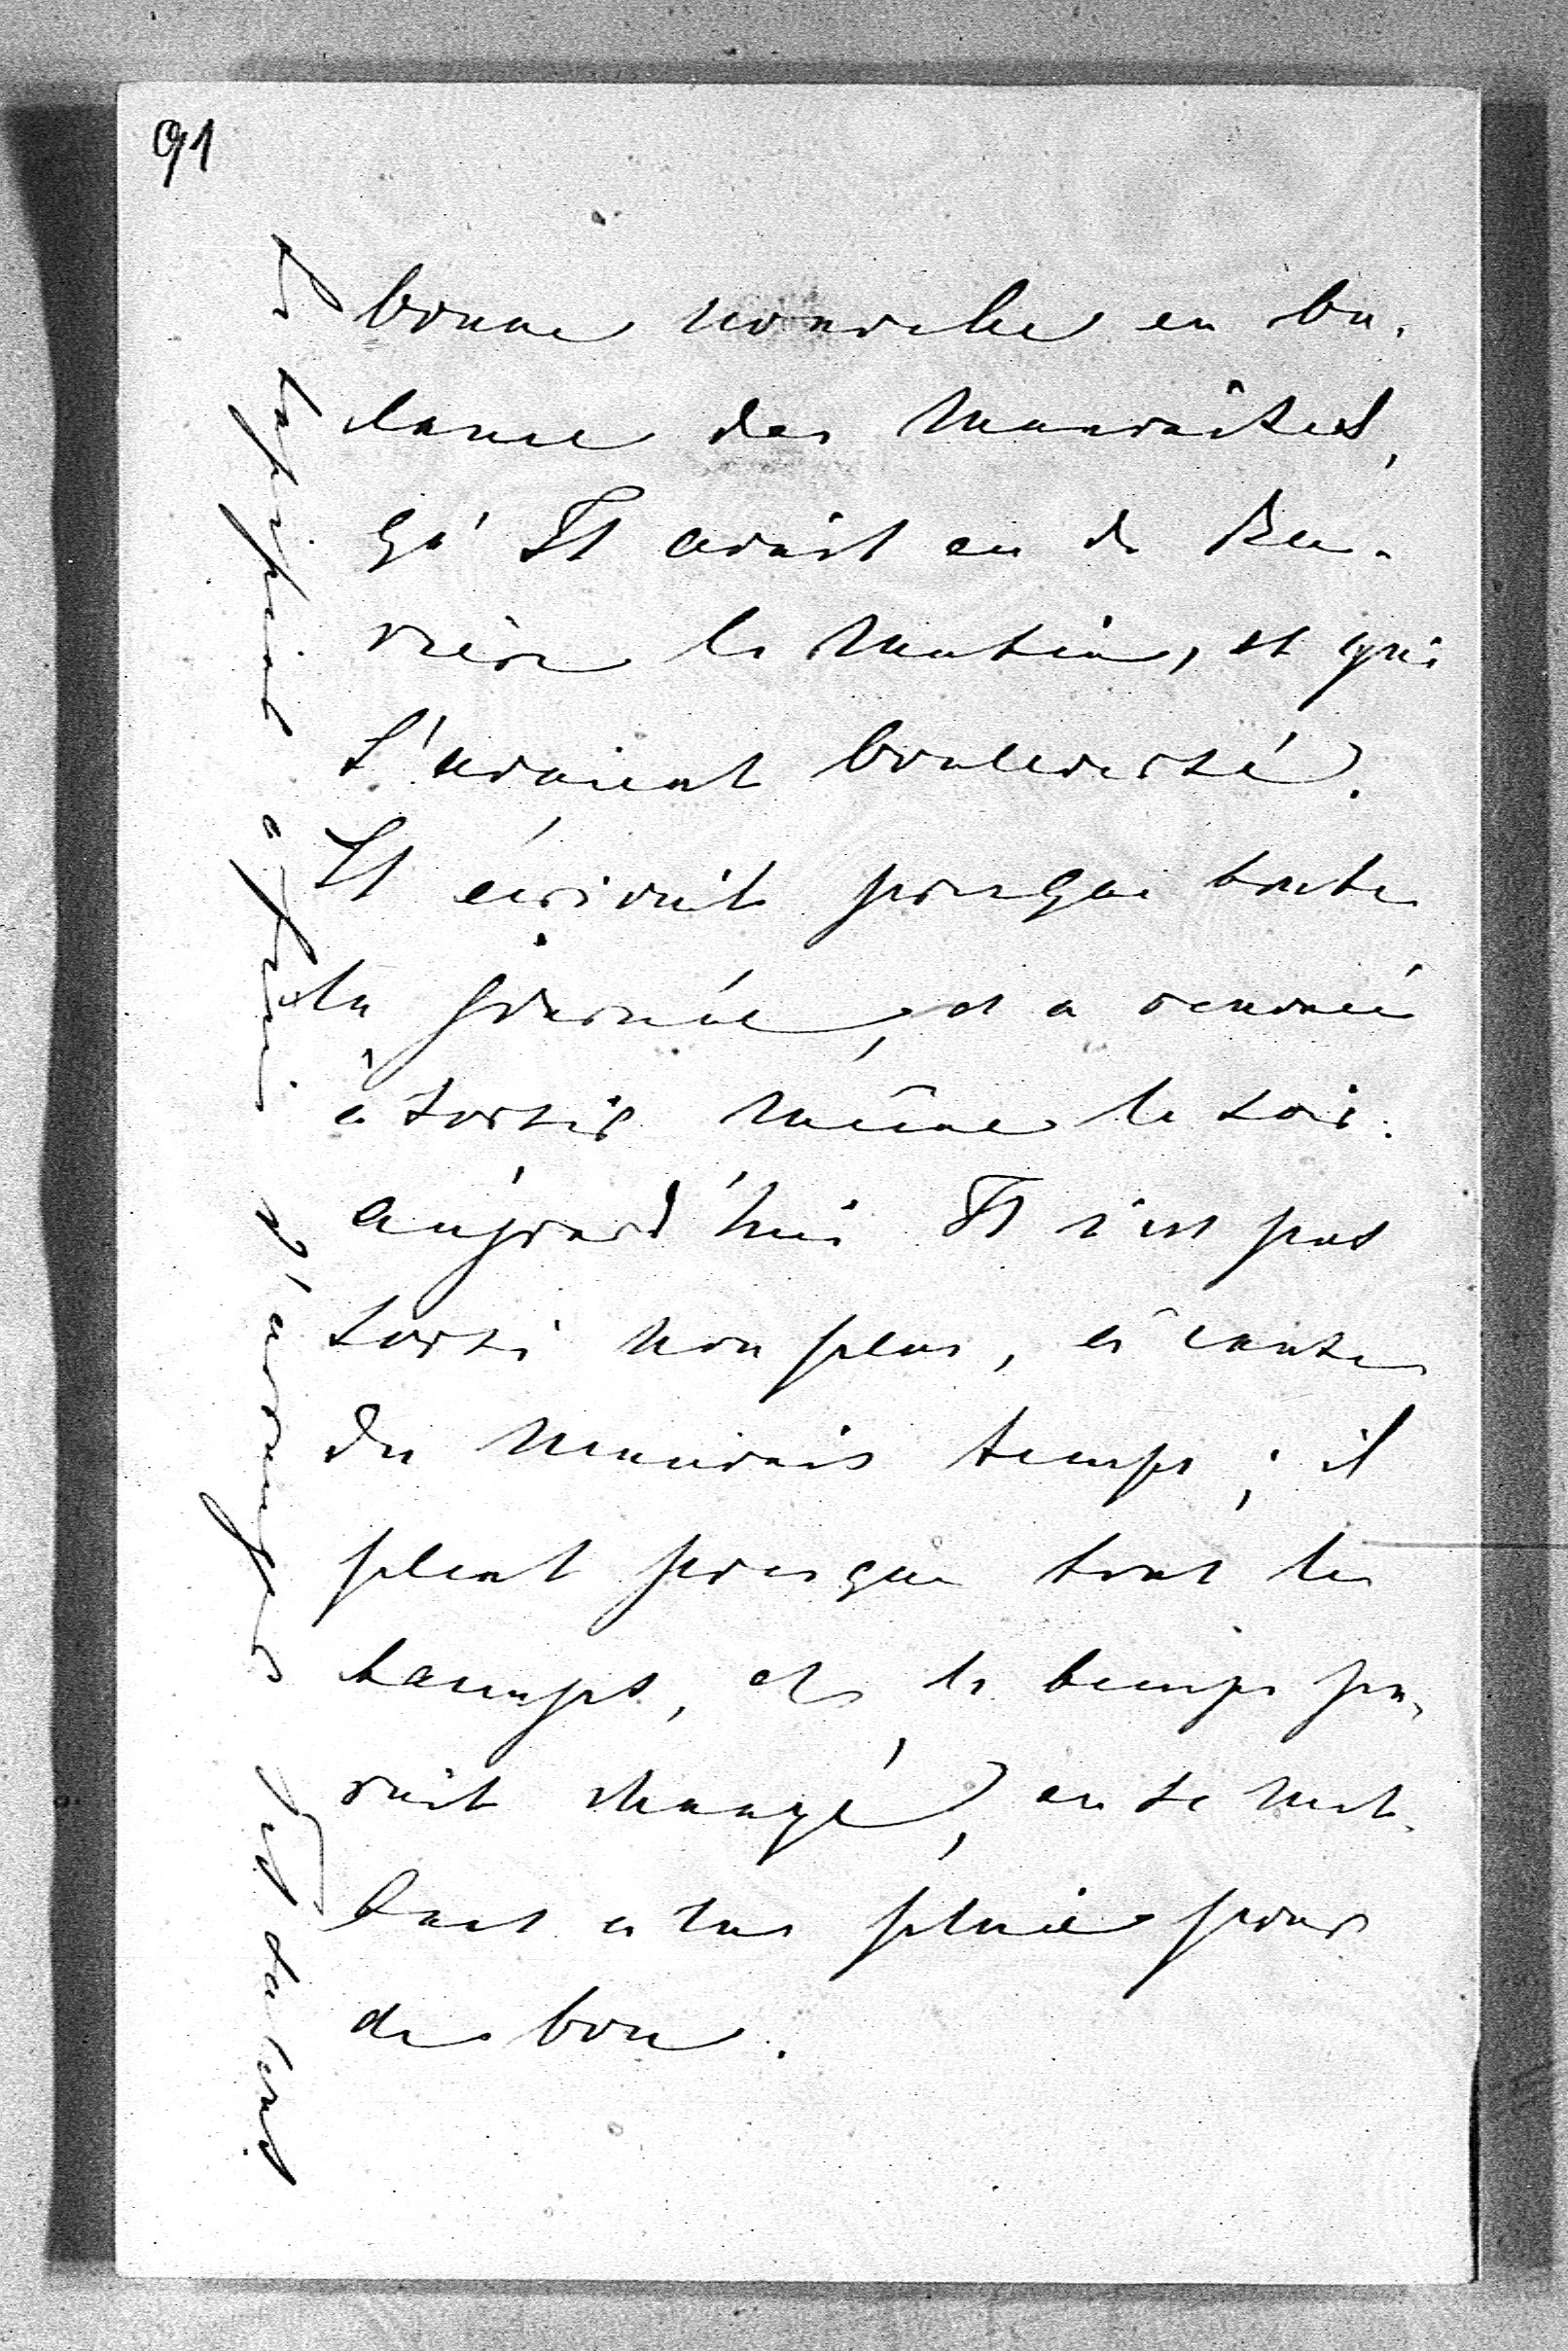 91
bonne nouvelle en ba-
lance des mauvaises,
qu'Il avait eu de Ba-
vière le matin, et qui
L'avaient bouleversé.
Il écrivait presque toute
la journée, et a renoncé
à sortir même le soir.
aujourd'hui Il n'est pas
sorti non plus, à cause
du mauvais temps; il
pleut presque tout le
temps, et le temps pa-
rait changé, en se met-
tant à la pluie pour
de bon.
Le tapissier a fini d'arranger